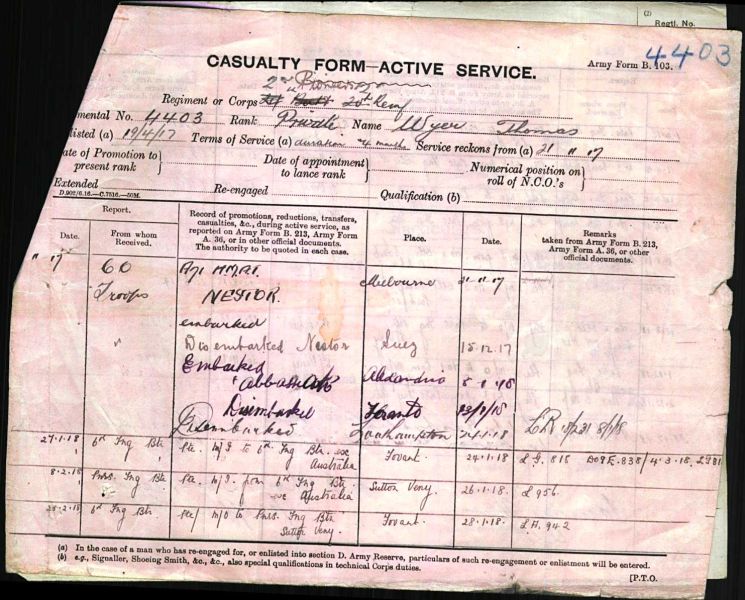 (2)
Regtl. No.
4403
CASUALTY FORM—ACTIVE SERVICE.
Army Form B. 103.
2nd Pioneers
Regiment or Corps 20th Reinf
mental No. 4403 Rank Private Name Wyer Thomas
listed (a) 19/4/17 Terms of Service (a) duration 4 months Service reckons from (a) 21 11 17
ate of Promotion to present rank
Date of appointment to lance rank
Numerical position on roll of N.C.O.'s
Extended
Re-engaged
Qualification (b)
D.902/6.16.—C.7516.—50M.
Report.
Date.
From whom Received.
Record of promotions, reductions, transfers, casualties, &c., during active service, as reported on Army Form B. 213, Army Form A. 36, or in other official documents. The authority to be quoted in each case.
Place.
Date.
Remarks taken from Army Form B. 213, Army Form A. 36, or other official documents.
11 17 CO Melbourne 21 11 17
Troops NESTOR.
embarked
" Disembarked Nestor Suez 15.12.17
Embarked Alexandria
Disembarked Taranto
Disembarked Southampton 24.1.18
27.1.18 6th Tng Btn Pte. M/I to 6th Tng Btn. exe Australia Fovant. 24.1.18
8.2.18 Pnrs. Tng Bn. Pte. M/I. from 6th Tng Bn. exe Australia Sutton Veny. 26.1.18. L 956.
6th Tng Bn Pte/ M/O to Pnrs. Tng Btn Sutton Veny. Fovant. 28.1.18. 942
(a) In the case of a man who has re-engaged for, or enlisted into section D. Army Reserve, particulars of such re-engagement or enlistment will be entered.
(b) e.g., Signaller, Shoeing Smith, &c., &c., also special qualifications in technical Corps duties.
[P.T.O.